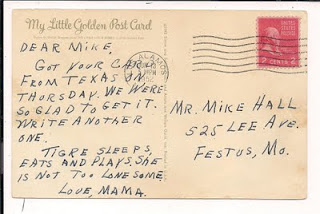 My Little Golden Post Card
DEAR MIKE,
GOT YOUR CARD
FROM TEXAS ON
THURSDAY. WE WERE
SO GLAD TO GET IT.
WRITE ANOTHER
ONE.
TIGRE SLEEPS,
EATS AND PLAYS. SHE
IS NOT TOO LONESOME.
LOVE, MAMA.
ALAMOS
PM
UNITED STATES
POSTAGE
2 CENTS 2
MR. MIKE HALL
525 LEE AVE.
FESTUS, MO.